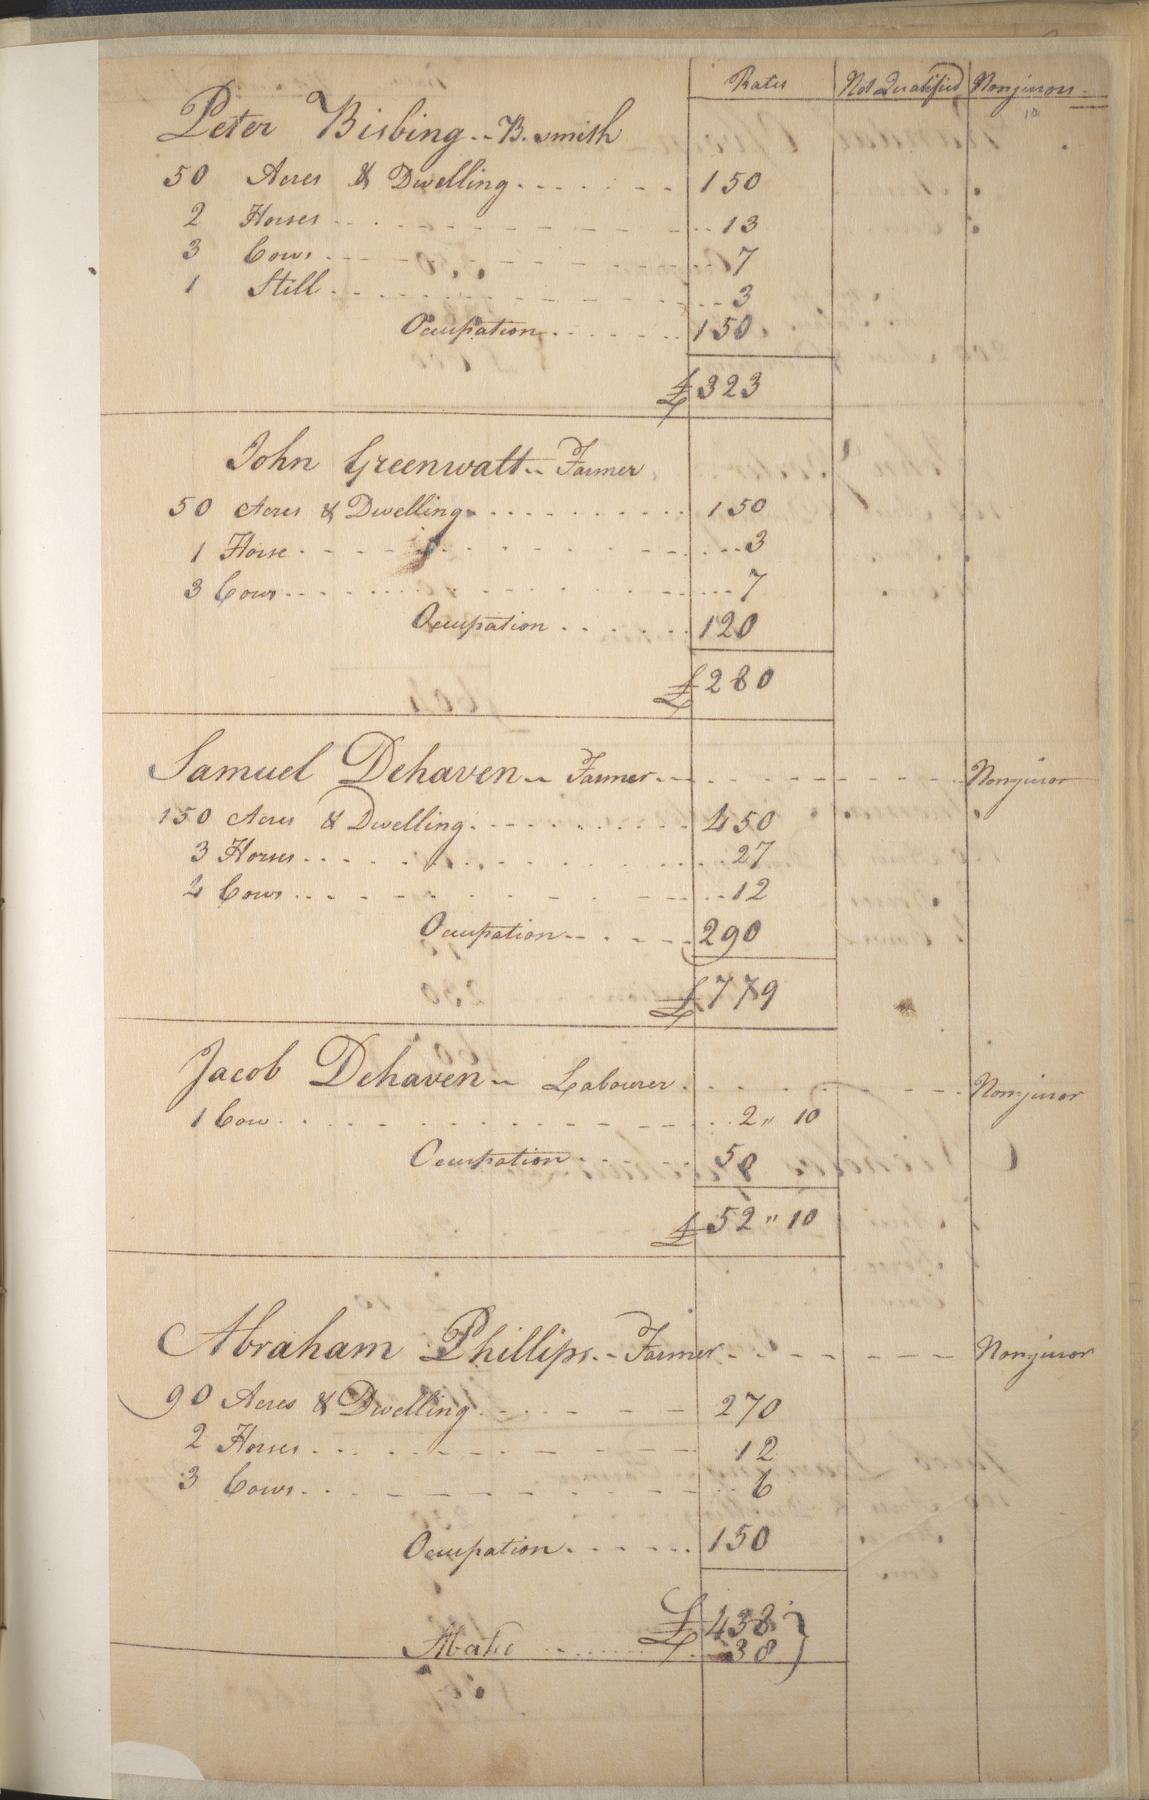 Rates Not Qualified Nonjurors
Peter Bisbing -- B. smith
50 Acres & Dwelling 150
2 Horses 13
3 Cows 7
1 Still 3
Occupation 150
£ 323
John Greenwalt -- Farmer
50 Acres & Dwelling 150
1 Horse 3
3 Cows 7
Occupation 120
£ 280
Samuel Dehaven -- Farmer -- Nonjuror
150 Acres & Dwelling 450
3 Horses 27
4 Cows 12
Occupation 290
£ 779
Jacob Dehaven -- Labourer Nonjuror
1 Cow 2 " 10
Occupation 50
£ 52 " 10
Abraham Phillips -- Farmer Nonjuror
90 Acres & Dwelling 270
2 Horses 12
3 Cows 6
Occupation 150
£ 438
Abate 38